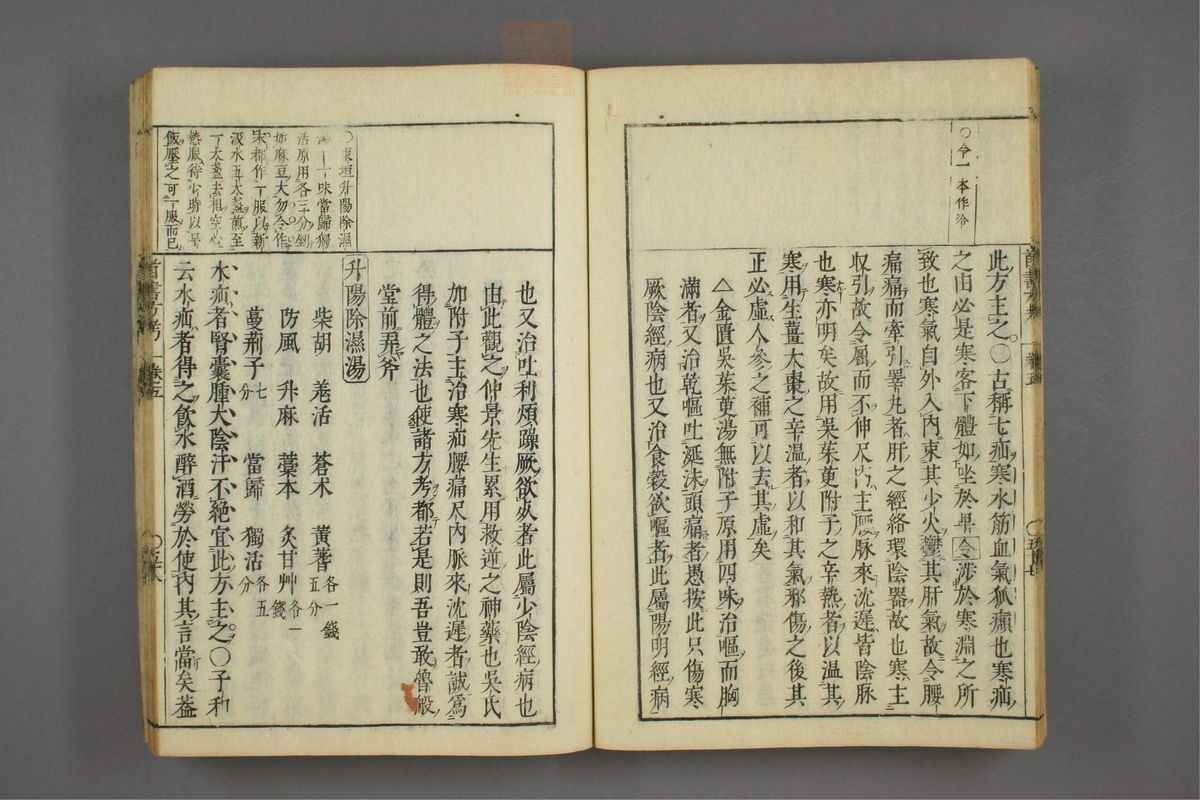 〇令一本作冷
此方主之〇古稱七疝寒水筋血氣狐㿗也寒疝
之由必是寒客下體如坐於卑令涉於寒淵之所
致也寒氣自外入內束其少火鬱其肝氣故令腰
痛痛而牽引睪丸者肝之經絡環陰器故也寒主
収引故令屬而不伸尺內主腰脉來沈遲皆陰脉
也寒亦明矣故用吳茱萸附子之辛熱者以温其
寒用生薑大棗之辛温者以和其氣邪傷之後其
正必虛人參之補可以去其虛矣
△金匱吳茱萸湯無附子原用四味治嘔而胸
滿者又治乾嘔吐涎沫頭痛者愚按此只傷寒
厥陰經病也又治食穀欲嘔者此屬陽明經病
也又治吐利煩躁厥欲死者此屬少陰經病也
由此觀之仲景先生累用救逆之神藥也吳氏
加附子主治寒疝腰痛尺內脈來沈遲者誠爲
得體之法也使諸方考都若是則吾豈敢魯般
堂前弄斧
〇東垣升陽除濕
湯十一味當歸獨
活原用各三分剉
如麻豆大勿令作
末都作一服以新
汲水五大盞煎至
一大盞去柤空心
熱服待少時以早
飯壓之可一服而已
升陽除濕湯
柴胡 羗活 蒼术 黃蓍各一錢五分
防風 升麻 藁本 炙甘艸各一錢
蔓荊子七分 當歸 獨活各五分
水疝者腎囊腫大陰汗不絕宜此方主之〇子和
云水疝者得之飲水醉酒勞於使內其言當矣葢
卷五